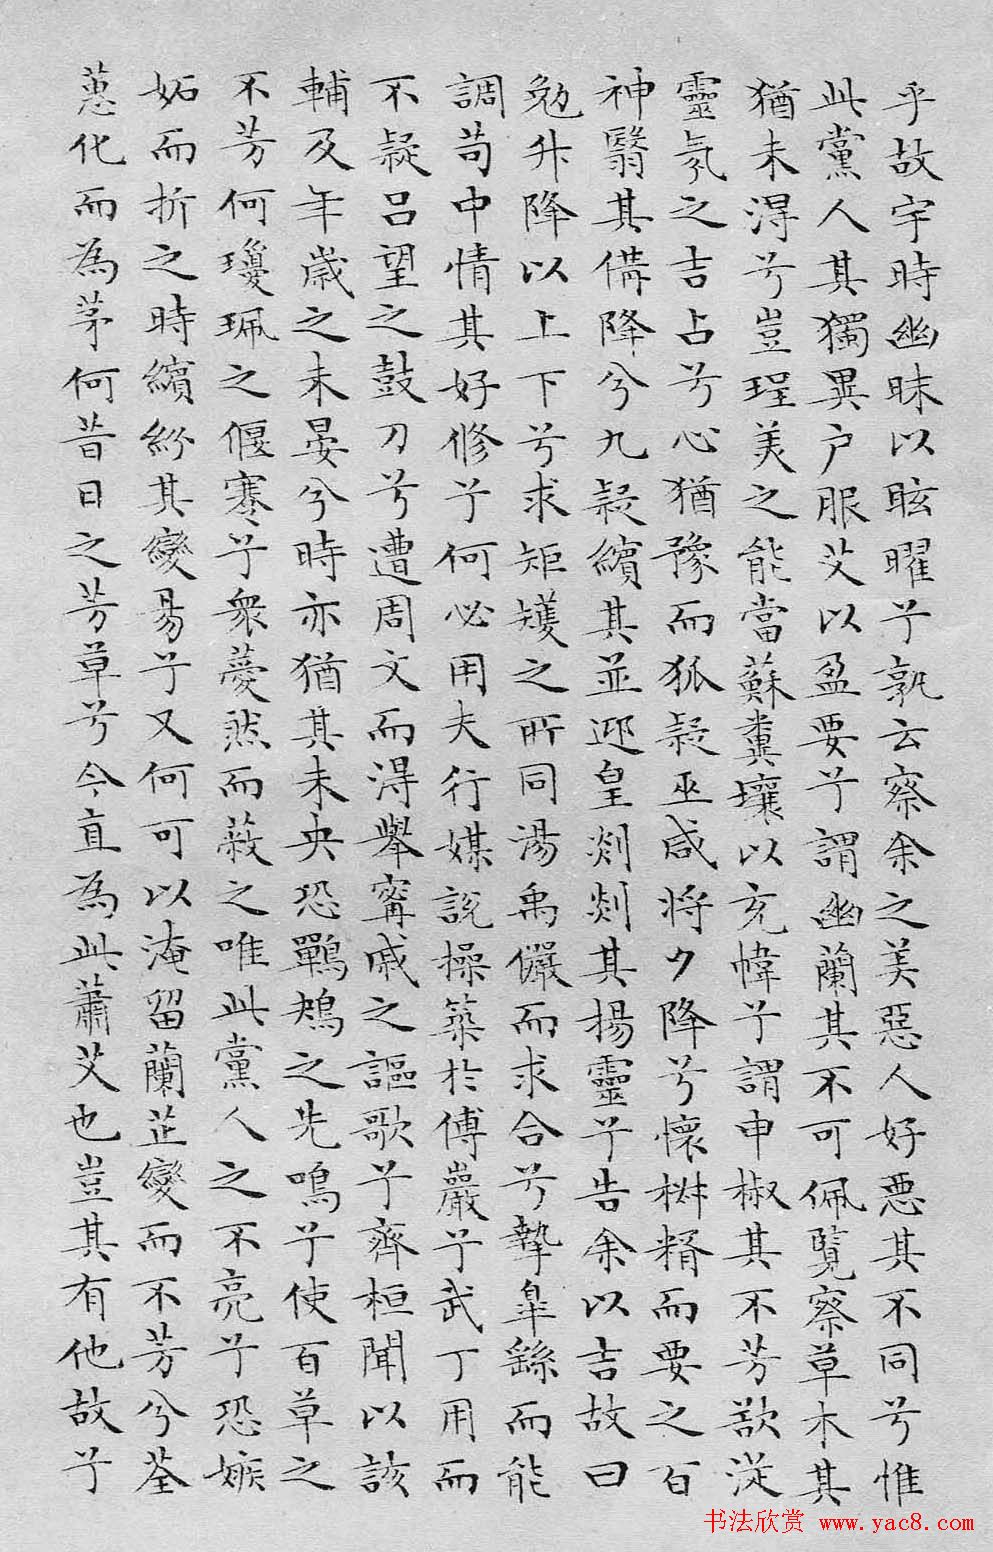 乎故宇時幽昧以眩曜兮孰云察余之美惡人好惡其不同兮惟
此黨人其獨異户服艾以盈要兮謂幽蘭其不可佩覽察草木其
猶未淂兮豈珵美之能當蘇糞壤以充幃兮謂申椒其不芳欲從
靈氛之吉占兮心猶豫而狐疑巫咸將夕降兮懷椒糈而要之百
神翳其備降兮九疑繽其並迎皇剡剡其揚靈兮告余以吉故曰
勉升降以上下兮求矩矱之所同湯禹儼而求合兮摯皐繇而能
調苟中情其好修兮何必用夫行媒説操築於傅巖兮武丁用而
不疑吕望之鼓刀兮遭周文而淂舉甯戚之謳歌兮齊桓聞以該
輔及年歲之未晏兮時亦猶其未央恐鵜鴂之先鳴兮使百草之
不芳何瓊珮之偃蹇兮衆薆然而蔽之唯此黨人之不亮兮恐嫉
妬而折之時繽紛其變易兮又何可以淹留蘭芷變而不芳兮荃
蕙化而為茅何昔日之芳草兮今直為此蕭艾也豈其有他故兮
书法欣赏 www.yac8.com